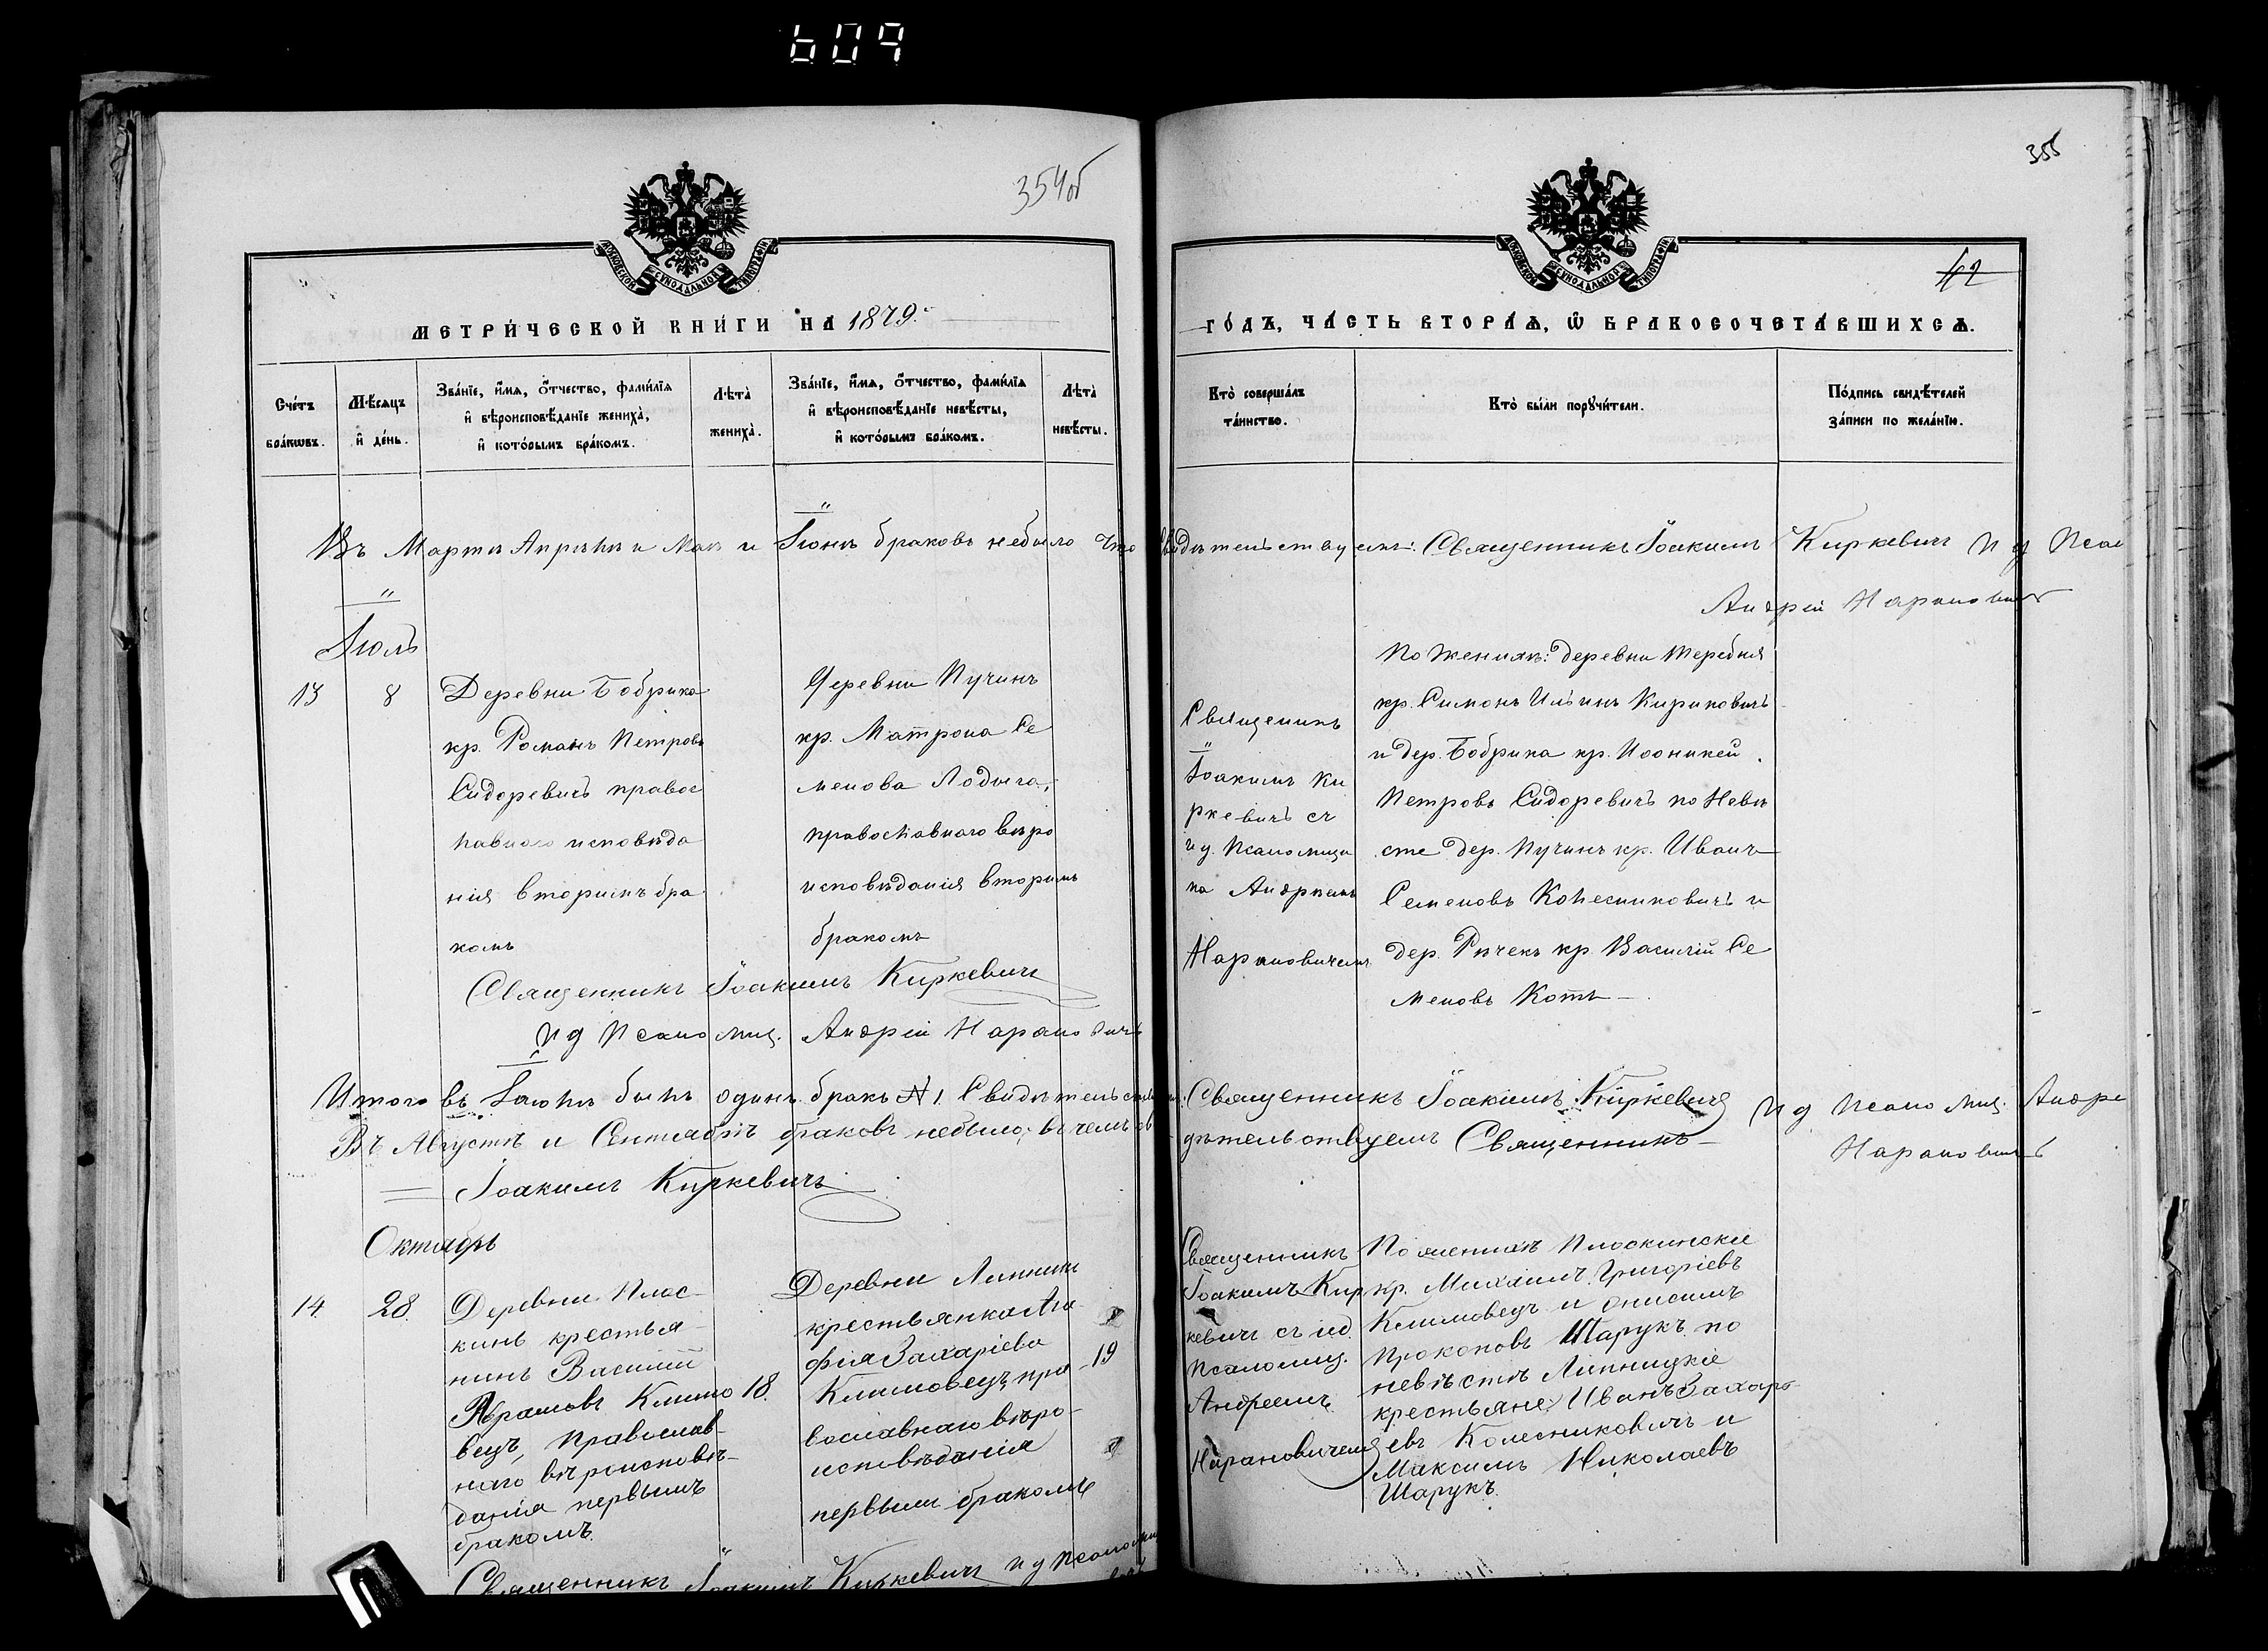 609
354об
355
42
МОСКОВСКОЙ СѴНОДАЛЬНОЙ ТИПОГРАФІИ
МОСКОВСКОЙ СѴНОДАЛЬНОЙ ТИПОГРАФІИ
МЕТРИ́ЧЕСКОЙ КНИ́ГИ НА 1879.
ГО́ДЪ, ЧА́СТЬ ВТОРА́Ѧ, Ѽ БРАКОСОЧЕТА́ВШИХСѦ.
Сче́тъ бра́кѡвъ.
Мѣ́сѧцъ и҆ де́нь.
Зва́нїе, и҆́мѧ, о҆́тчество, фами́лїѧ
и҆ вѣроисповѣ́данїе жениха̀,
и҆ кото́рымъ бра́комъ.
Лѣта̀ жениха̀.
Зва́нїе, и҆́мѧ, о҆́тчество, фами́лїѧ
и҆ вѣроисповѣ́данїе невѣ́сты,
и҆ кото́рымъ бра́комъ.
Лѣта̀ невѣ́сты.
Кто̀ соверша́лъ та́инство.
Кто̀ бы́ли порꙋчи́тели.
По́дпись свидѣ́телей за́писи по жела́нїю.
Въ Мартѣ Апрѣлѣ и Маѣ и Іюнѣ браковъ небыло что свидѣтельствуемъ: Священникъ Іоакимъ Киркевичъ И д Псал
Андрей Нарановичъ
Іюль
13
8
Деревни Бобрика
кр. Романъ Петровъ
Сидоревичъ правос
лавного исповѣда
нія вторимъ бра
комъ
Деревни Пучинъ
кр. Матрона Се
менова Лодыга,
православного вѣро
исповѣданія вторимъ
бракомъ
Священикъ
Іоакимъ Ки
ркевичъ съ
и д. Псаломщи
ка Андреемъ
Нарановичемъ
По Женихѣ: деревни Теребня
кр. Симонъ Ильинъ Кириковичъ
и дер. Бобрика кр. Иооникей
Петровъ Сидоревичъ по Невѣ
сте дер. Пучинъ кр. Иванъ
Семеновъ Колесниковичъ и
дер. Рѣчекъ кр. Василій Се
меновъ Котъ
Священникъ Іоакимъ Киркевичъ
И д Псаломщ. Андрей Нарановичъ
Итого въ Іюлѣ былъ одинъ бракъ № 1. Священникъ Іоакимъ Киркевичъ И д Псаломщ. Андре
Нарановичъ
Въ Августѣ и Сентябрѣ браковъ небыло, въ чемъ сви
дѣтельствуемъ Священникъ
Іоакимъ Киркевичъ
Октябрь
14.
28.
Деревни Плос-
кинь крестья-
нинъ Василій
Абрамовъ Климо
вецъ, Православ-
наго вѣроисповѣ-
данія первымъ
бракомъ.
18.
Деревни Липники
крестьянка Ага-
фія Захаріева
Климовецъ, пра-
вославнаго вѣро-
исповѣданія
первымъ бракомъ
19
Священникъ
Іоакимъ Кир
кевичъ съ ид.
Псаломщ.
Андреемъ
Нарановичемъ
По женихѣ Плоскинскіе
кр. Михаилъ Григоріевъ
Климовецъ и Онисимъ
Прокоповъ Шарукъ по
невѣстѣ Липницкіе
крестьяне Иванъ Захарь-
евъ Колесниковичъ и
Максимъ Николаевъ
Шарукъ.
Священникъ Іоакимъ Киркевичъ и д Псаломщ